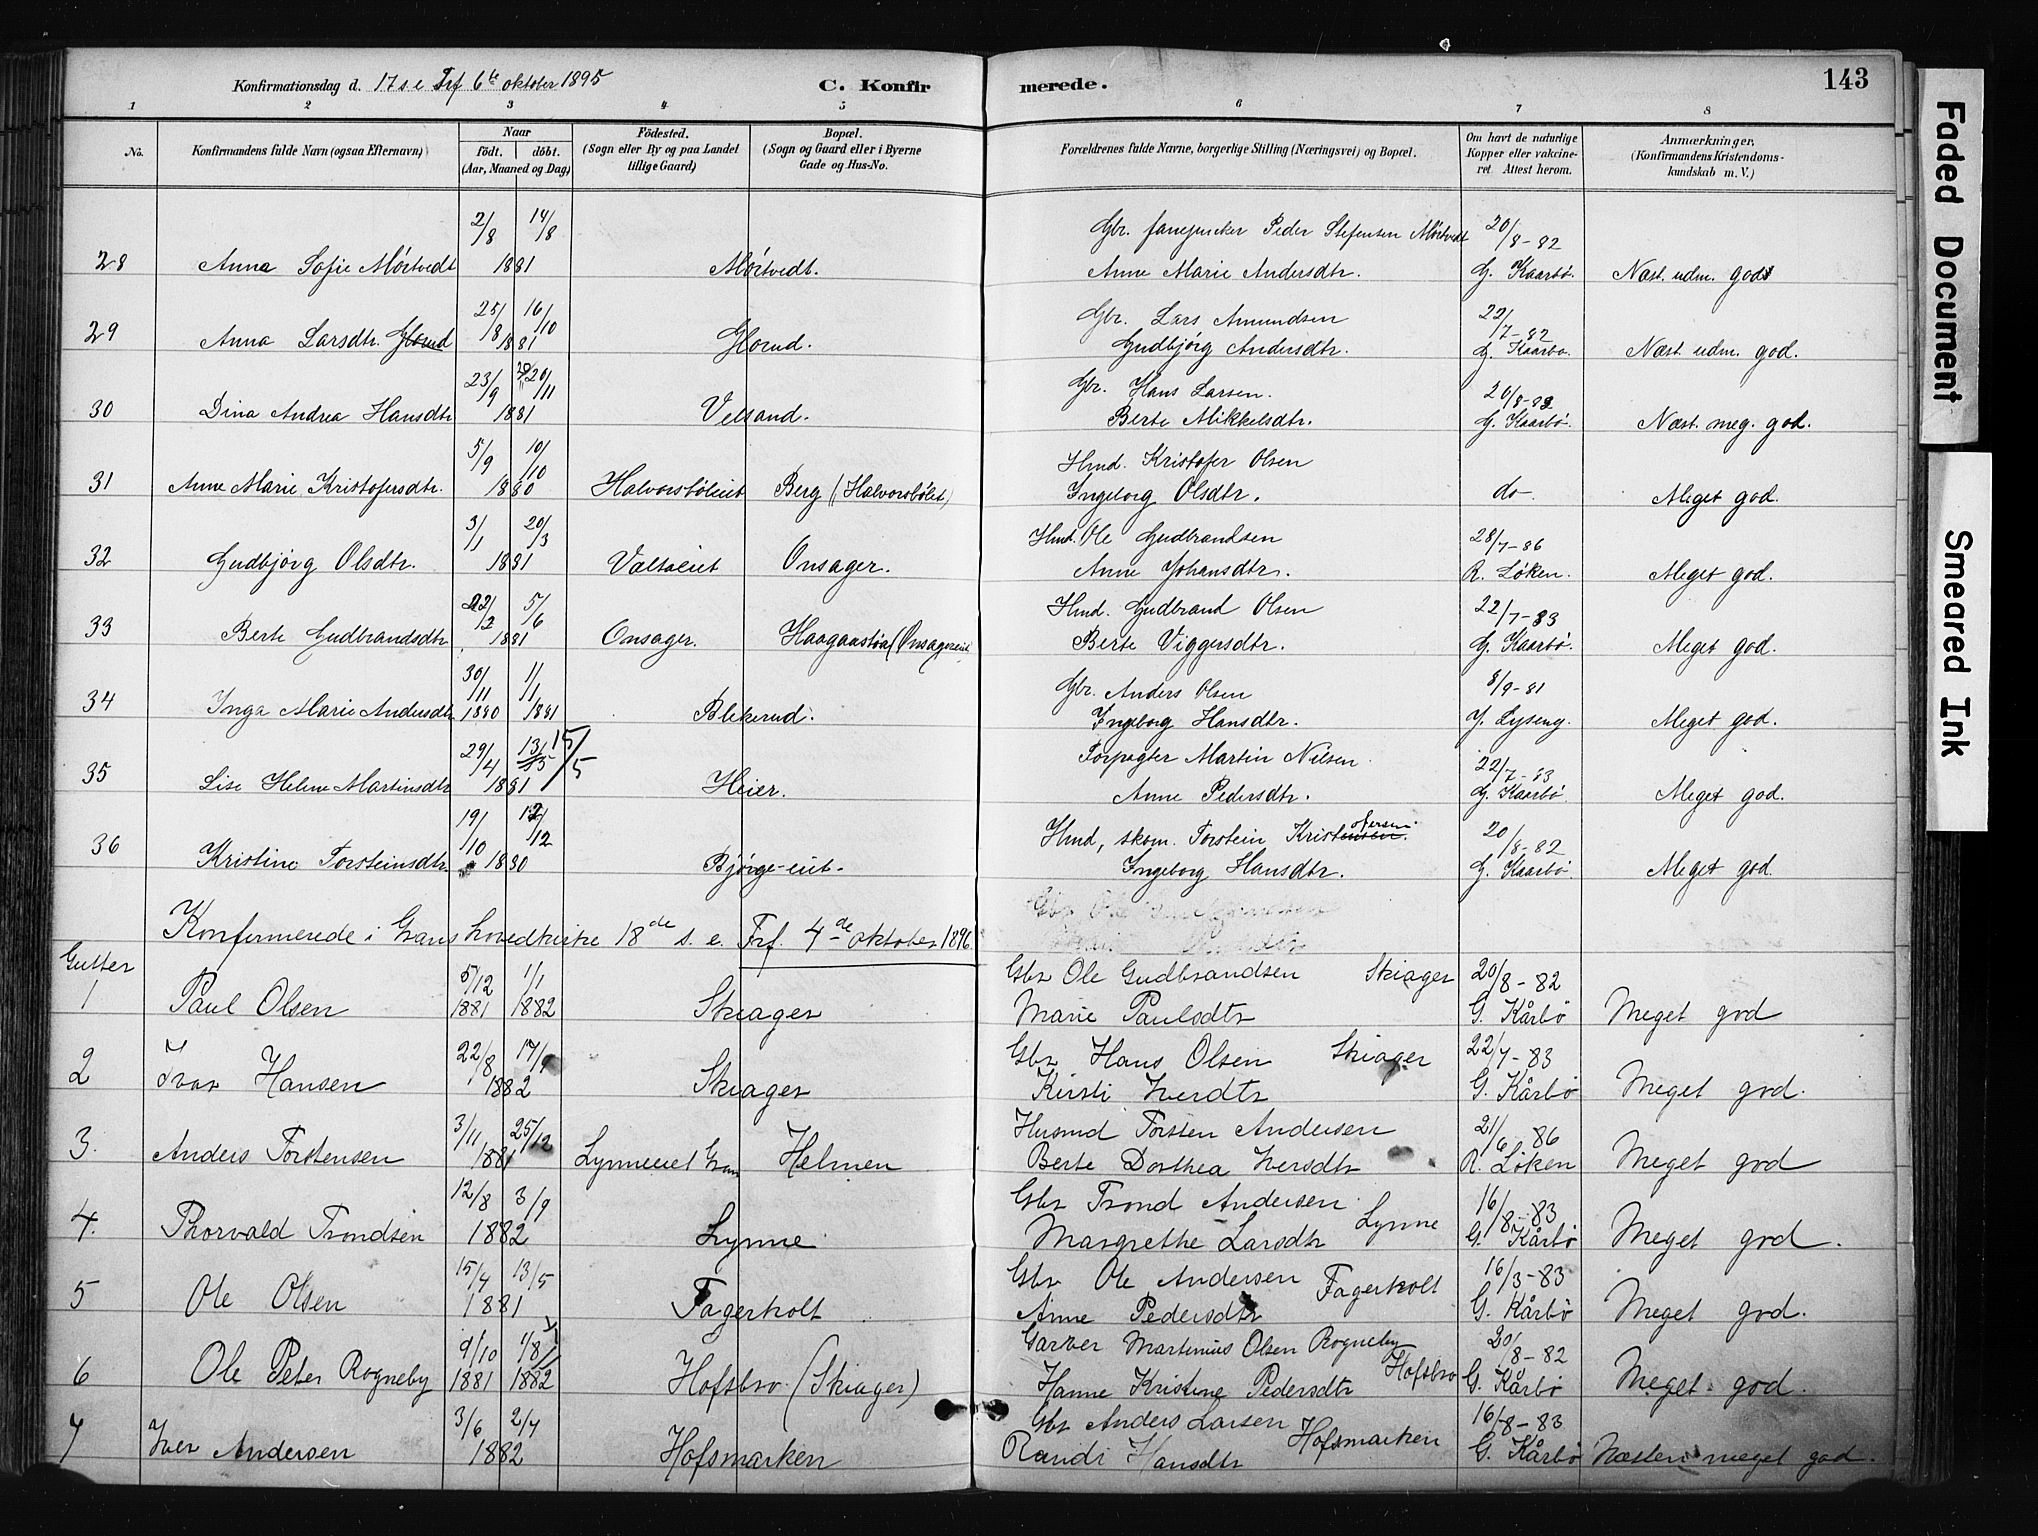 Konfirmationsdag d. 17 s e Trf 6te oktober 1895 C. Konfirmerede. 143
1 2 3 4 5 6 7 8
No. Konfirmandens fulde Navn (ogsaa Efternavn) Naar födt. döbt. (Aar, Maaned og Dag) Födested. (Sogn eller By og paa Landet tillige Gaard) Bopæl. (Sogn og Gaard eller i Byerne Gade og Hus-No. Forældrenes fulde Navne, borgerlige Stilling (Næringsvei) og Bopæl. Om havt de naturlige Kopper eller vakcineret Attest herom. Anmærkninger, (Konfirmandens Kristendomskundskab m. V.)
2/8 14/8 Gbr. fanejunker Peder Stefensen Mörtvedt 20/8-82
28 Anna Sofie Mörtvedt 1881 Mörtvedt. Anne Marie Andersdtr. G. Kaarbö. Næst. udm. god
25/8 16/10 Gbr. Lars Amundsen 22/7-82
29 Anna Larsdtr. Horud 1881 Horud. Gudbjörg Andersdtr. G. Kaarbo. Næst. udm. god.
23/9 20/11 Gbr. Hans Larsen. 20/8-82
30 Dina Andrea Hansdtr 1881 Velsand. Berte Mikkelsdtr. G. Kaarbö. Næst. meg. god.
5/9 10/10 Hmd. Kristofer Olsen
31 Anne Marie Kristofersdtr. 1880 Halvorsböleiet Berg (Halvorsbölet) Ingeborg Olsdtr. do-. Meget god.
3/1 20/3 Hmd. Ole Gudbrandsen 28/7-86
32 Gudbjörg Olsdtr. 1881 Valtoeiet Onsager. Anne Johansdtr. R. Løken. Meget god.
22/2 5/6 Hmd. Gudbrand Olsen 22/7-83
33 Berte Gudbrandsdtr. 1881 Onsager. Haagaastua (Onsagereiet) Berte Viggersdtr. G. Kaarbö. Meget god.
30/11 1/1 Gbr. Anders Olsen 8/9-81
34 Inga Marie Andersdtr. 1880 1881 Blekerud. Ingeborg Hansdtr. J. Lyseng. Meget god.
29/4 13/5 15/5 Forpagter Martin Nilsen 22/7-83
35 Lise Helene Martinsdtr 1881 Heier. Anne Pedersdtr. G. Kaarbö. Meget god.
19/10 12/12 Hmd, skom. Torstein Kristensen ofersen. 20/8-82
36 Kristine Torsteinsdtr. 1880 Björge-eiet. Ingeborg Hansdtr. G. Kaarbö. Meget god.
Konfirmerede i Grans hovedkirke 18de s. e. Trf. 4de oktober 1896.
Gutter 5/12 1/1 Gbr Ole Gudbrandsen Skiager 20/8-82
1 Paul Olsen 1881 1882 Skiager Marie Paulsdtr G. Kårbö Meget god
22/8 17/9 Gbr Hans Olsen Skiager 22/7-83
2 Ivar Hansen 1882 Skiager Kirsti Iverdtr G. Kårbö Meget god.
3/11 25/12 Husmd Torsten Andersen 21/6 86
3. Anders Torstensen 1881 Lynneeiet Gran Helmen Berte Dorthea Iversdtr R. Löken Meget god
12/8 3/9 Gbr Trond Andersen Lynne 16/8-83
4. Thorvald Trondsen 1882 Lynne Margrethe Larsdtr G. Kårbö Meget god.
15/4 13/5 Gbr Ole Andersen Fagerholt 16/3-83
5 Ole Olsen 1881 Fagerholt Anne Pedersdtr G. Kårbö Meget god.
9/10 1/8 Garver Martinius Olsen Rogneby 20/8-82
6 Ole Peter Rogneby 1881 1882 Hofsbro (Skiager) Hanne Kristine Pedersdtr Hofsbro G. Kårbö Meget god.
3/6 2/7 Gbr Anders Larsen Hofsmarken 16/8-83
7 Iver Andersen 1882 Hofsmarken Randi Hansdtr G. Kårbö Næsten meget god.
Faded Document
Smeared Ink